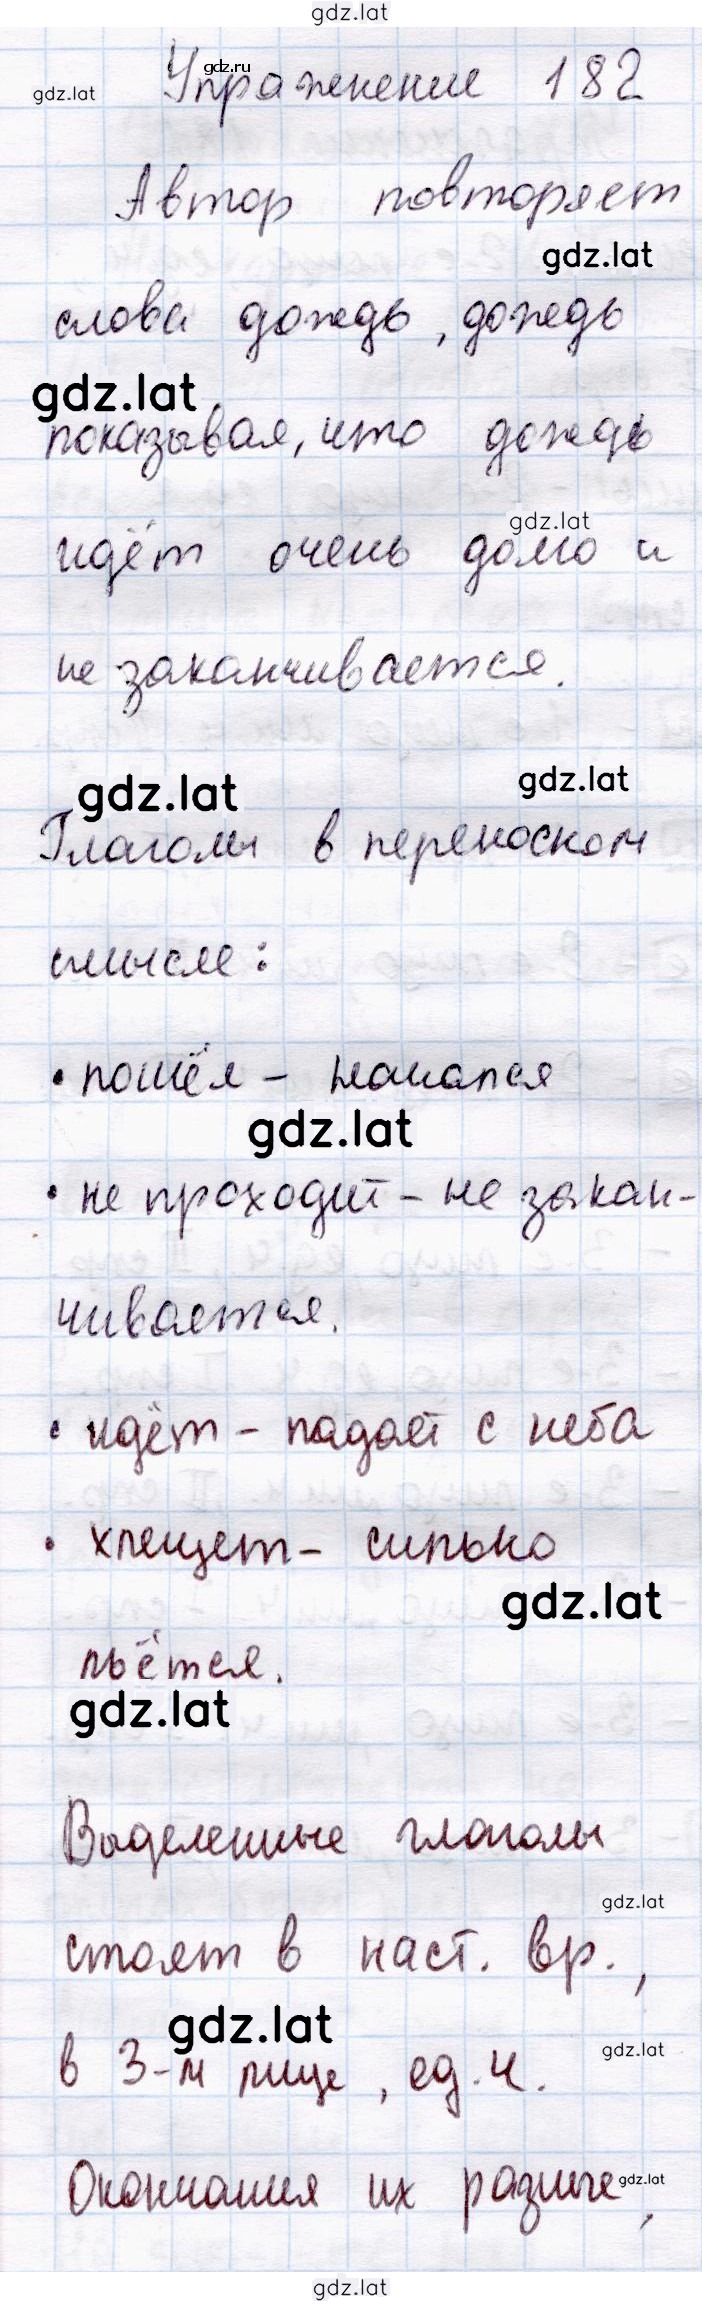 gdz.lat
gdz.ru
gdz.lat
Упражнение 182
Автор повторяет
gdz.lat
слова дождь, дождь
gdz.lat
показывая, что дождь
gdz.lat
идёт очень долго и
не заканчивается.
gdz.lat
gdz.lat
Глаголы в переноском
смысле:
• пошёл – начался
gdz.lat
• не проходит – не закан-
чивается.
• идёт – падает с неба
• хлещет – сильно
gdz.lat
льётся.
gdz.lat
Выделенные глаголы
gdz.lat
стоят в наст. вр.,
gdz.lat
в 3-м лице, ед.ч.
gdz.lat
Окончания их разные,
gdz.lat
gdz.lat